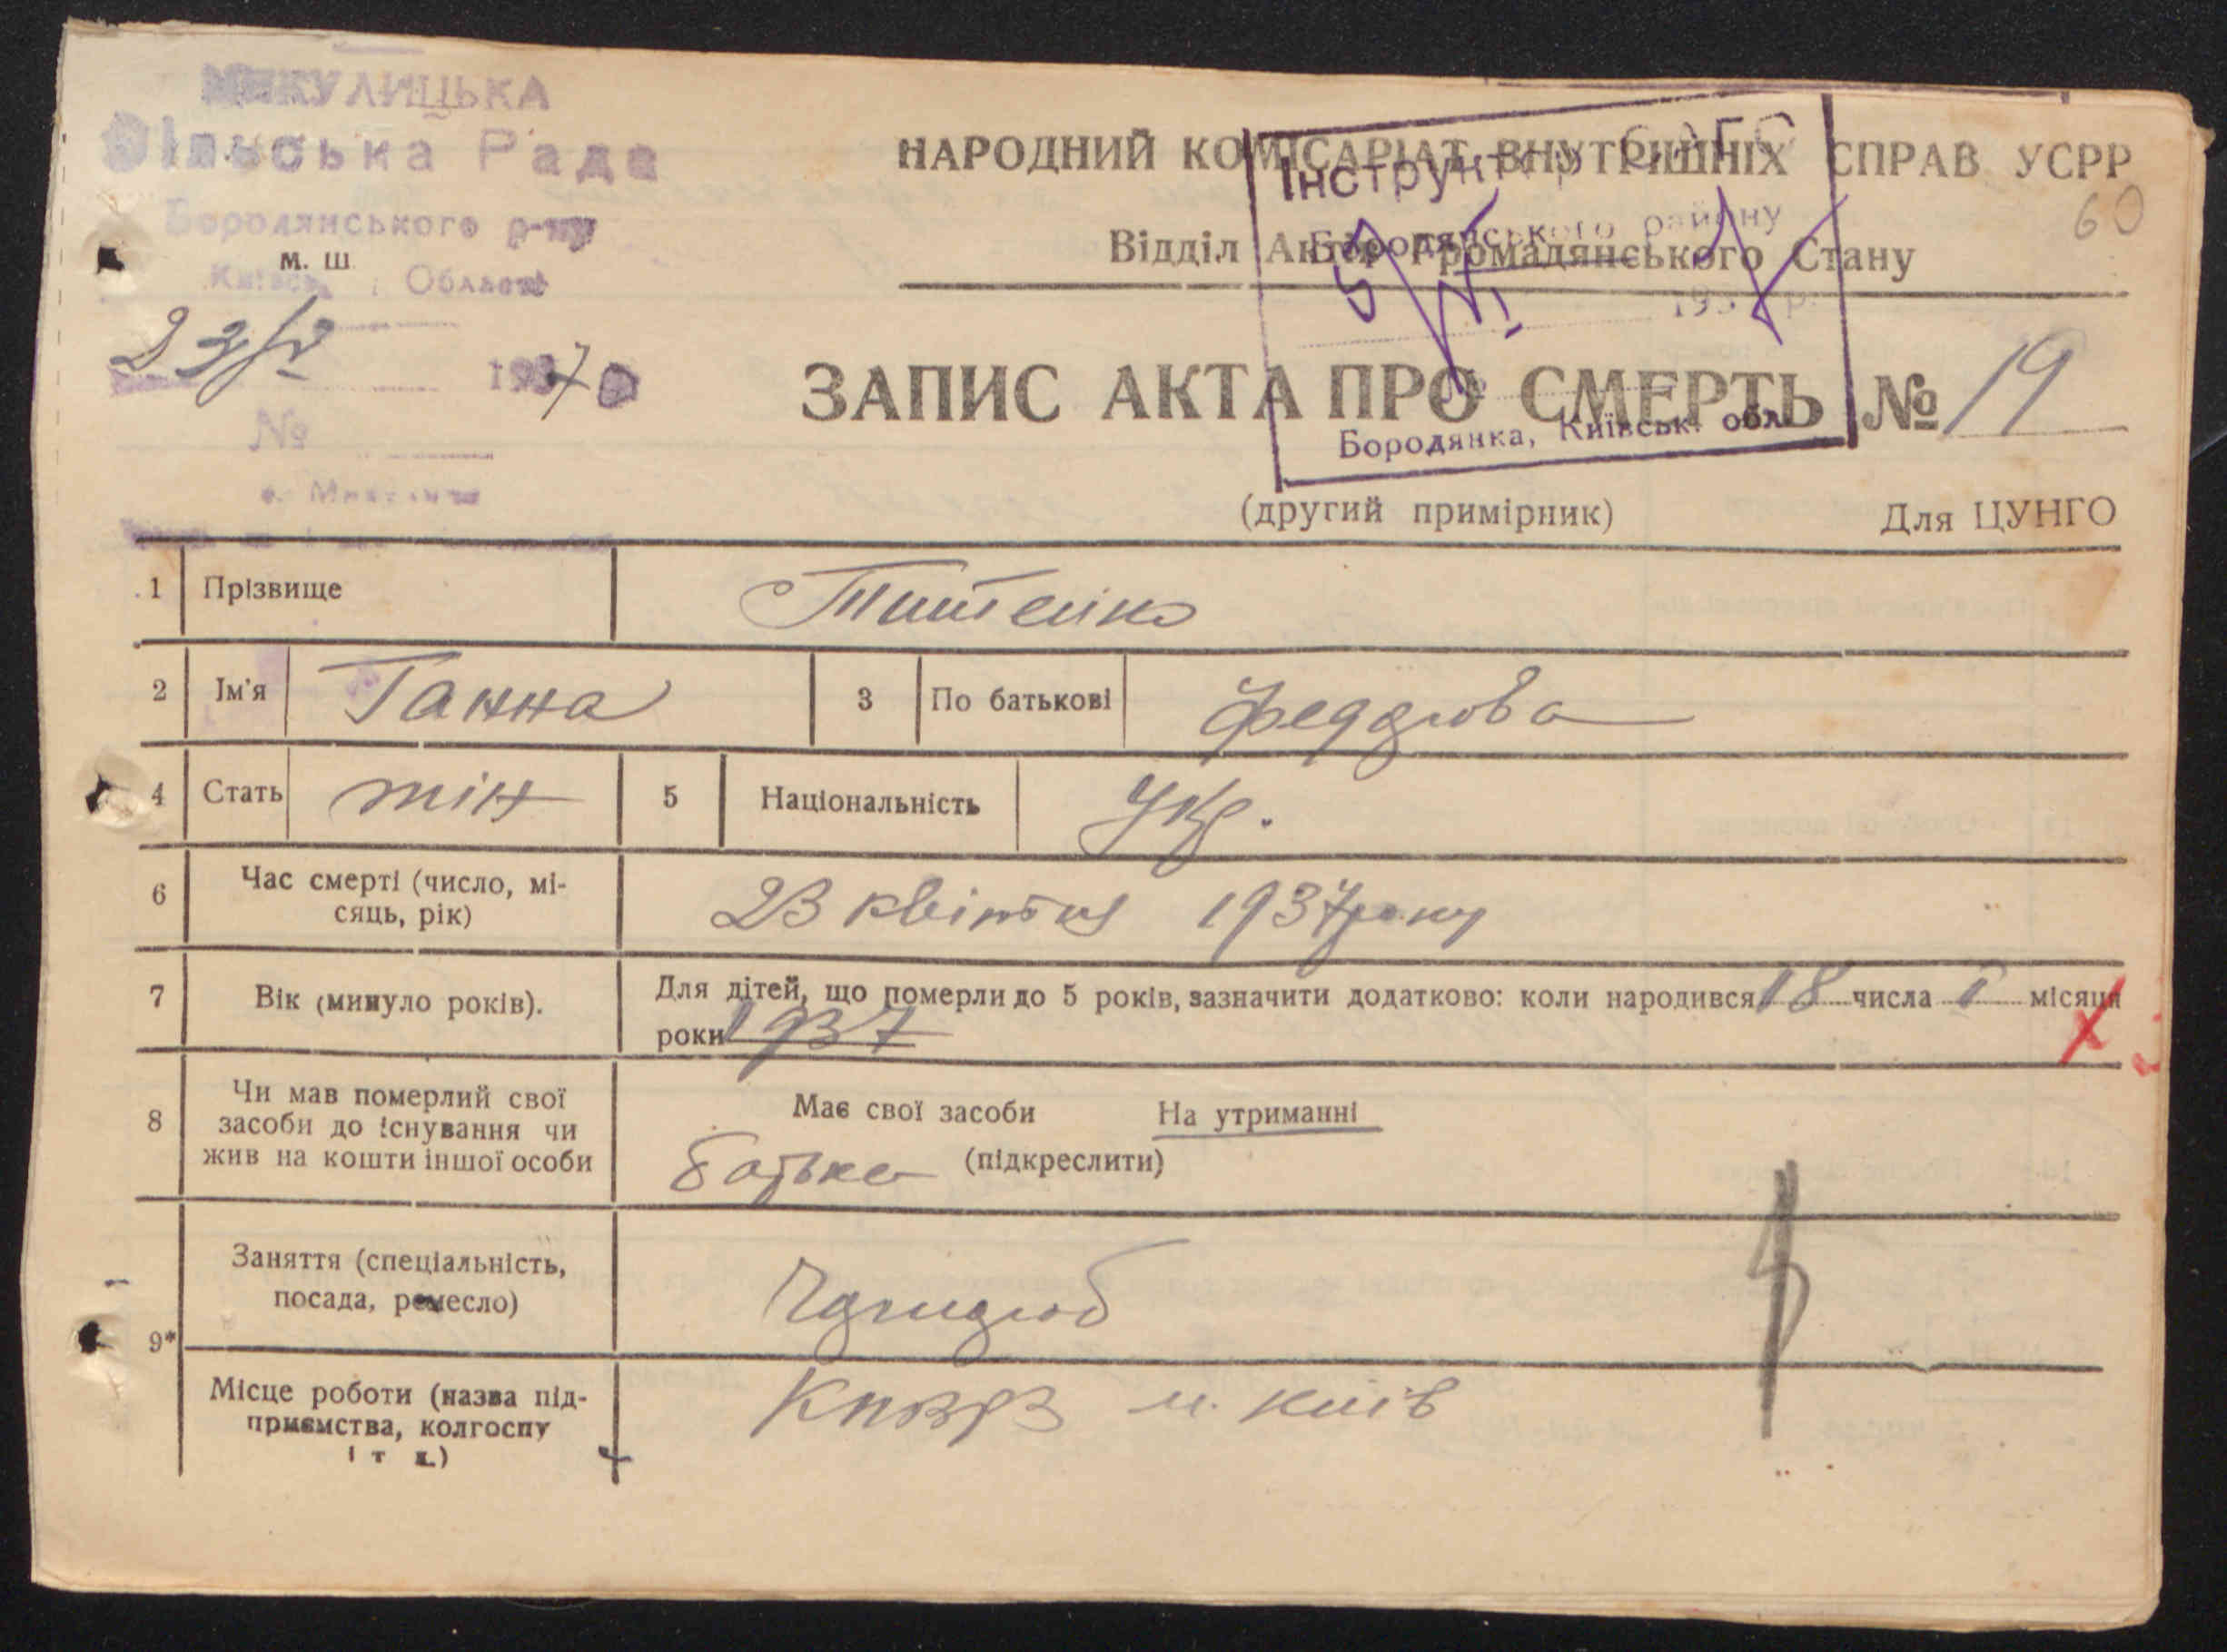 МИКУЛИЦЬКА
Сільська Рада
Бородянського р-ну
м. ш
Київськ. Області
23/IV 1937 р
№
НАРОДНИЙ КОМІСАРІАТ ВНУТРІШНІХ СПРАВ УСРР
60
Відділ Актів Громадянського Стану
Інструктор
Бородянського району
193 р.
Бородянка, Київськ. обл.
ЗАПИС АКТА ПРО СМЕРТЬ № 19
(другий примірник) Для ЦУНГО
1 Прізвище Титенко
2 Ім'я Ганна 3 По батькові Федорова
4 Стать жін 5 Національність Укр.
6 Час смерті (число, мі-
сяць, рік) 23 квітня 1937 року
7 Вік (минуло років). Для дітей, що померли до 5 років, зазначити додатково: коли народився 18 числа I місяця
роки 1937
8 Чи мав померлий свої
засоби до існування чи
жив на кошти іншої особи
Має свої засоби На утриманні
батька (підкреслити)
9* Заняття (спеціальність,
посада, ремесло)
Місце роботи (назва під-
приємства, колгоспу
і т д.)
м. Київ